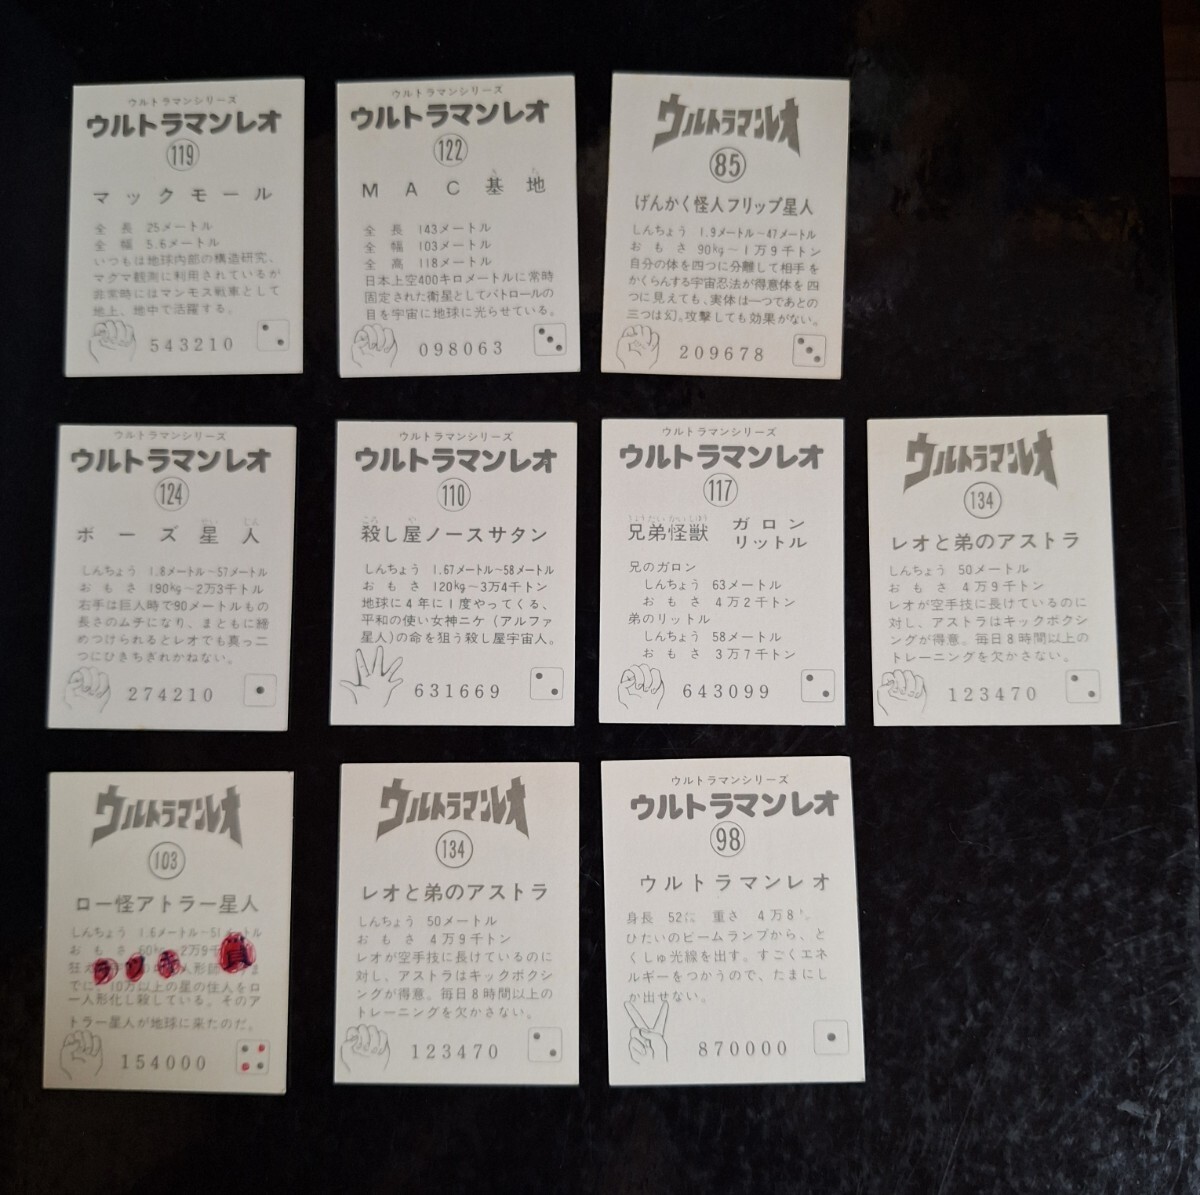 ウルトラマンシリーズ
ウルトラマンレオ
119
マックモール
全長 25メートル
全幅 5.6メートル
いつもは地球内部の構造研究、
マグマ観測に利用されているが
非常時にはマンモス戦車として
地上、地中で活躍する。
543210
ウルトラマンシリーズ
ウルトラマンレオ
122
MAC基地
全長 143メートル
全幅 103メートル
全高 118メートル
日本上空400キロメートルに常時
固定された衛星としてパトロールの
目を宇宙に地球に光らせている。
098063
ウルトラマンレオ
85
げんかく怪人フリップ星人
しんちょう 1.9メートル~47メートル
おもさ 90kg~1万9千トン
自分の体を四つに分離して相手を
かくらんする宇宙忍法が得意体を四
つに見えても、実体は一つであとの
三つは幻。攻撃しても効果がない。
209678
ウルトラマンシリーズ
ウルトラマンレオ
124
ボーズ星人
しんちょう 1.8メートル~57メートル
おもさ 190kg~2万3千トル
右手は巨人時で90メートルもの
長さのムチになり、まともに締
めつけられるとレオでも真っ二
つにひきちぎれかねない。
274210
ウルトラマンシリーズ
ウルトラマンレオ
110
殺し屋ノースサタン
しんちょう 1.67メートル~58メートル
おもさ 120kg~3万4千トン
地球に4年に1度やってくる、
平和の使い女神ニケ(アルファ
星人)の命を狙う殺し屋宇宙人。
631669
ウルトラマンシリーズ
ウルトラマンレオ
117
兄弟怪獣 ガロン
リットル
兄のガロン
しんちょう 63メートル
おもさ 4万2千トン
弟のリットル
しんちょう 58メートル
おもさ 3万7千トン
643099
ウルトラマンレオ
134
レオと弟のアストラ
しんちょう 50メートル
おもさ 4万9千トン
レオが空手技に長けているのに
対し、アストラはキックボクシ
ングが得意。毎日8時間以上の
トレーニングを欠かさない。
123470
ウルトラマンレオ
103
ロー怪アトラー星人
しんちょう 1.6メートル~51メートル
おもさ 60kg~2万9千
人形師
でに、10万以上の星の住人をロ
ー人形化し殺している。そのア
トラー星人が地球に来たのだ。
154000
ウルトラマンレオ
134
レオと弟のアストラ
しんちょう 50メートル
おもさ 4万9千トン
レオが空手技に長けているのに
対し、アストラはキックボクシ
ングが得意。毎日8時間以上の
トレーニングを欠かさない。
123470
ウルトラマンシリーズ
ウルトラマンレオ
98
ウルトラマンレオ
身長 52㍍ 重さ 4万8㌧
ひたいのビームランプから、と
くしゅ光線を出す。すごくエネ
ルギーをつかうので、たまにし
か出せない。
870000